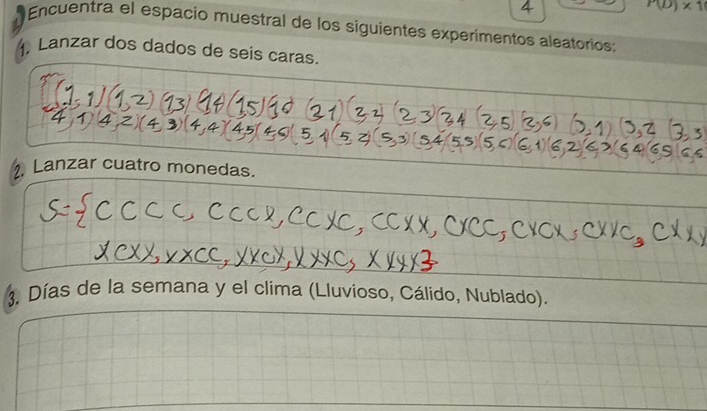 4 P(D) × 1
Encuentra el espacio muestral de los siguientes experimentos aleatorios:
1. Lanzar dos dados de seis caras.
(1,1)(1,2)(13)(14(1,5)( (21)(2,2) (2,3)(2,4(2,5)(2,6) (3,1)(3,2 (3,3)
4,1)(4,2)(4,3)(4,4)(4,5)(4,6)(5,1)(5,2)(5,3)(5,4(5,5)(5,6)(6,1)(6,2)(6,3)(6,4)(6,5)(6,6
2. Lanzar cuatro monedas.
S={CCCC, CCCX, CCXC, CCXX, CXCC, CXCX, CXXC, CXXX
XCXX, XXCC, XXCX, XXXC, XXXX}
3. Días de la semana y el clima (Lluvioso, Cálido, Nublado).